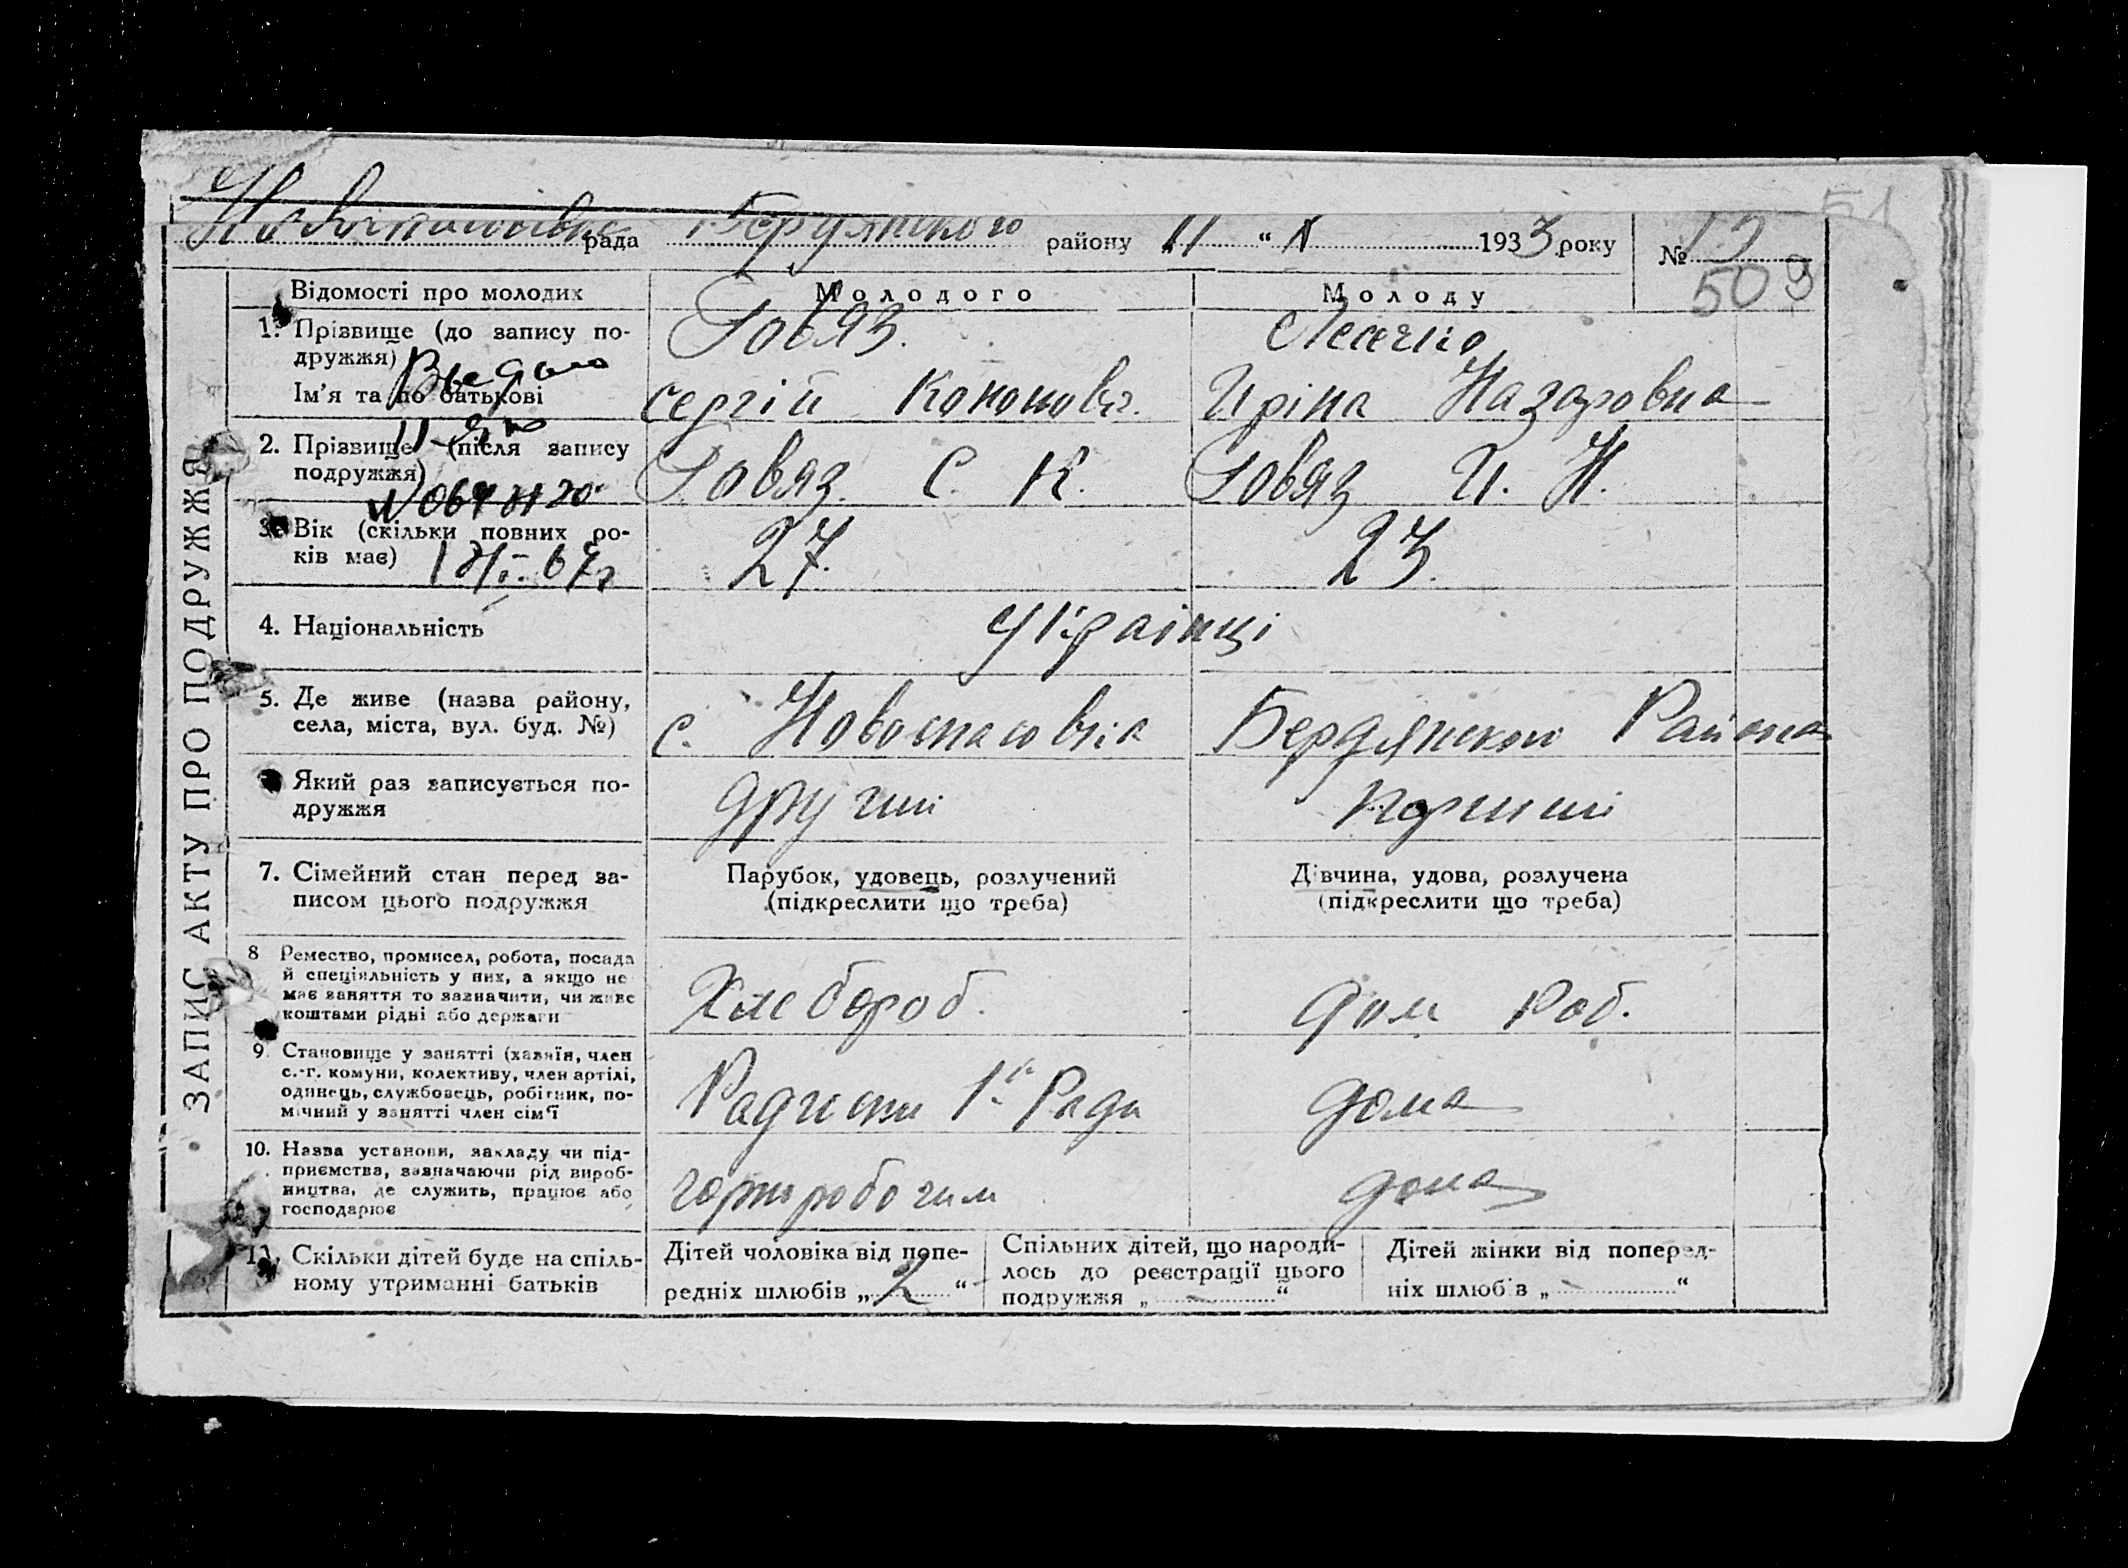 рада Бердянського району „11 “ X 1933 року № 
509
ЗАПИС АКТУ ПРО ПОДРУЖЖЯ
Відомості про молодих Молодого Молоду
1. Прізвище (до запису по-
дружжя) Говяз.
Ім'я та по батькові Сергій Кононович. Иріна Назаровна
2. Прізвище (після запису
подружжя) Говяз С. К. Говяз И. Н.
3. Вік (скільки повних ро-
ків має) 27. 23.
4. Національність Українці
5. Де живе (назва району,
села, міста, вул. буд. №) с. Новоспасовка Бердянского Района
Який раз записується по-
дружжя другий перший
7. Сімейний стан перед за-
писом цього подружжя
Парубок, удовець, розлучений
(підкреслити що треба)
Дівчина, удова, розлучена
(підкреслити що треба)
8 Ремество, промисел, робота, посада
й спеціяльність у них, а якщо не
має заняття то зазначити, чи живе
коштами рідні або держави
Хлебороб. дом роб.
9. Становище у занятті (хазяїн, член
с.-г. комуни, колективу, член артілі,
одинець, службовець, робітник, по-
мічний у занятті член сім'ї
дома
10. Назва установи, закладу чи під-
приємства, зазначаючи рід вироб-
ництва, де служить, працює або
господарює
дома
11. Скільки дітей буде на спіль-
ному утриманні батьків
Дітей чоловіка від попе-
редніх шлюбів „ 2 “
Спільних дітей, що народи-
лось до реєстрації цього
подружжя „ – “
Дітей жінки від поперед-
ніх шлюбів „ – “